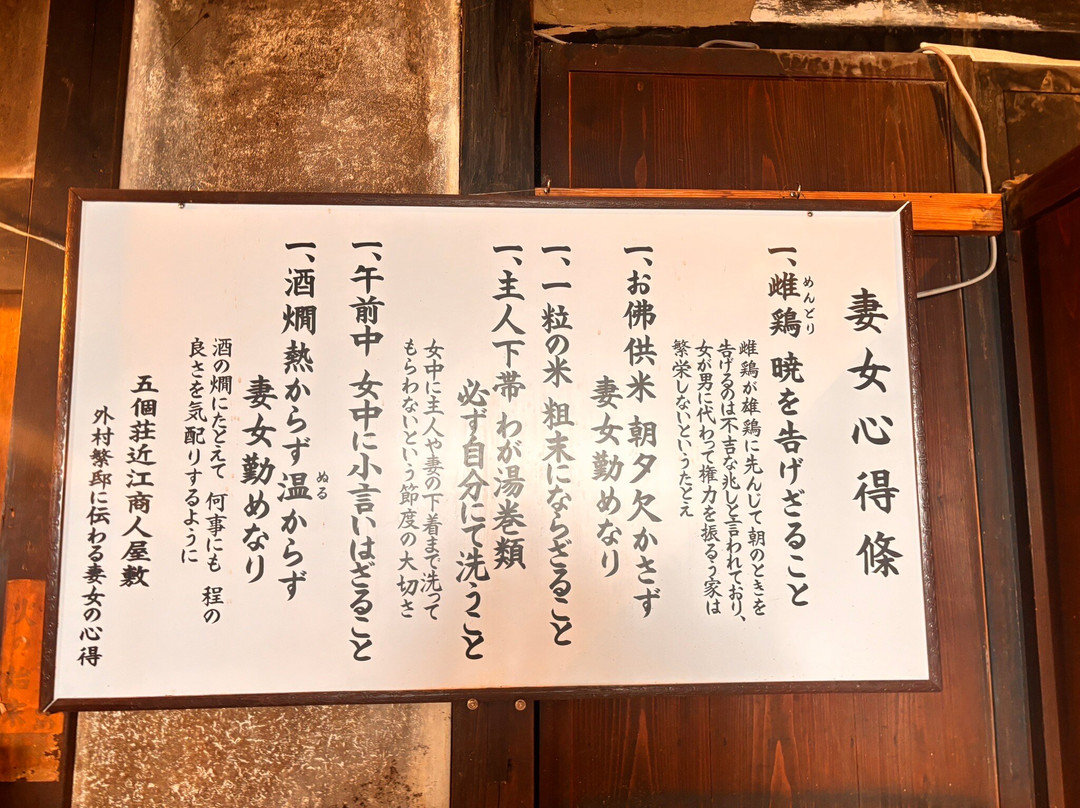 妻女心得條
一、雌鶏 暁を告げざること
めんどり
雌鶏が雄鶏に先んじて 朝のときを
告げるのは不吉な兆しと言われており、
女が男に代わって権力を振るう家は
繁栄しないというたとえ
一、お佛供米 朝夕欠かさず
妻女勤めなり
一、一粒の米 粗末にならざること
一、主人下帯 わが湯巻類
必ず自分にて洗うこと
女中に主人や妻の下着まで洗って
もらわないという節度の大切さ
一、午前中 女中に小言いはざること
一、酒燗 熱からず温からず
ぬる
妻女勤めなり
酒の燗にたとえて 何事にも 程の
良さを気配りするように
五個荘近江商人屋敷
外村繁邸に伝わる妻女の心得